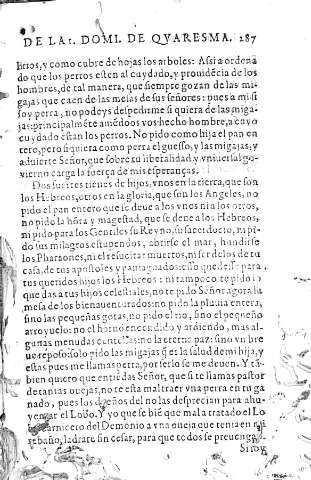 DE LA 1. DOMI. DE QVARESMA. 287
litos, y como cubre de hojas los arboles: Assi a ordena
do que los perros estẽ al cuydado, y prouidẽcia de los
hombres, de tal manera, que siempre gozan de las mi
gajas que caen de las mesas de sus señores: pues a mi si
soy perra, no podeys despedirme si quiera de las miga
jas: principalmẽte auiẽdoos vos hecho hombre, a cuyo
cuydado estan los perros. No pido como hija el pan en
tero, pero siquiera como perra el guesso, y las migajas, y
aduierte Señor, que sobre tu liberalidad y vniuersal go-
uierno carga la fuerça de mis esperanças.
Dos suertes tienes de hijos, vnos en la tierra, que son
los Hebreos, otros en la gloria, que son los Angeles, no
pido el pan entero que se deue a los vnos ni a los otros,
no pido la hõra y magestad, que se deue a los Hebreos,
ni pido para los Gentiles su Reyno, su sacerdocio, ni pi-
do tus milagros estupendos, abrirse el mar, hundirse
los Pharaones, ni el resucitar muertos, ni ser de los de tu
casa, de tus apostoles y paniaguados: esso quedese para
tus queridos hijos los Hebreos: ni tampoco te pido lo
que das a tus hijos celestiales, no te pido Señor agora la
mesa de los bienauenturados: no pido la pluuia entera,
sino las pequeñas gotas, no pido el rio, sino el pequeño
arroyuelo: no el horno encendido y ardiendo, mas al-
gunas menudas centellas: no la eterna paz: sino vn bre
ue reposo: solo pido las migajas q̃ es la salud de mi hija, y
estas pues me llamas perra, por serlo se me deuen. Y tã-
bien quiero que entiẽdas Señor, que si te llamas pastor
de tantas ouejas, no te esta mal traer vna perra en tu ga
nado, pues los dueños del no las desprecian para ahu-
yentar el Lobo. Y yo que se biẽ que mal a tratado el Lo
carnicero del Demonio a vna oueja que tenia en mi
rebaño, ladrare sin cesar, para que todos se preuengã.
Si soy